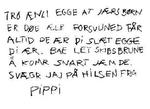 TRO ÆNLI EGGE AT JÆRS BØRN
ER DØE ELE FORSVUNED FÅR
ALTID DE ÆR DI SLÆT EGGE
DI ÆR. BAE LET SKIBSBRUNE
Å KOMR SNART JÆM DE.
SVÆGR JAJ PÅ HILSEN FRA
PIPPI